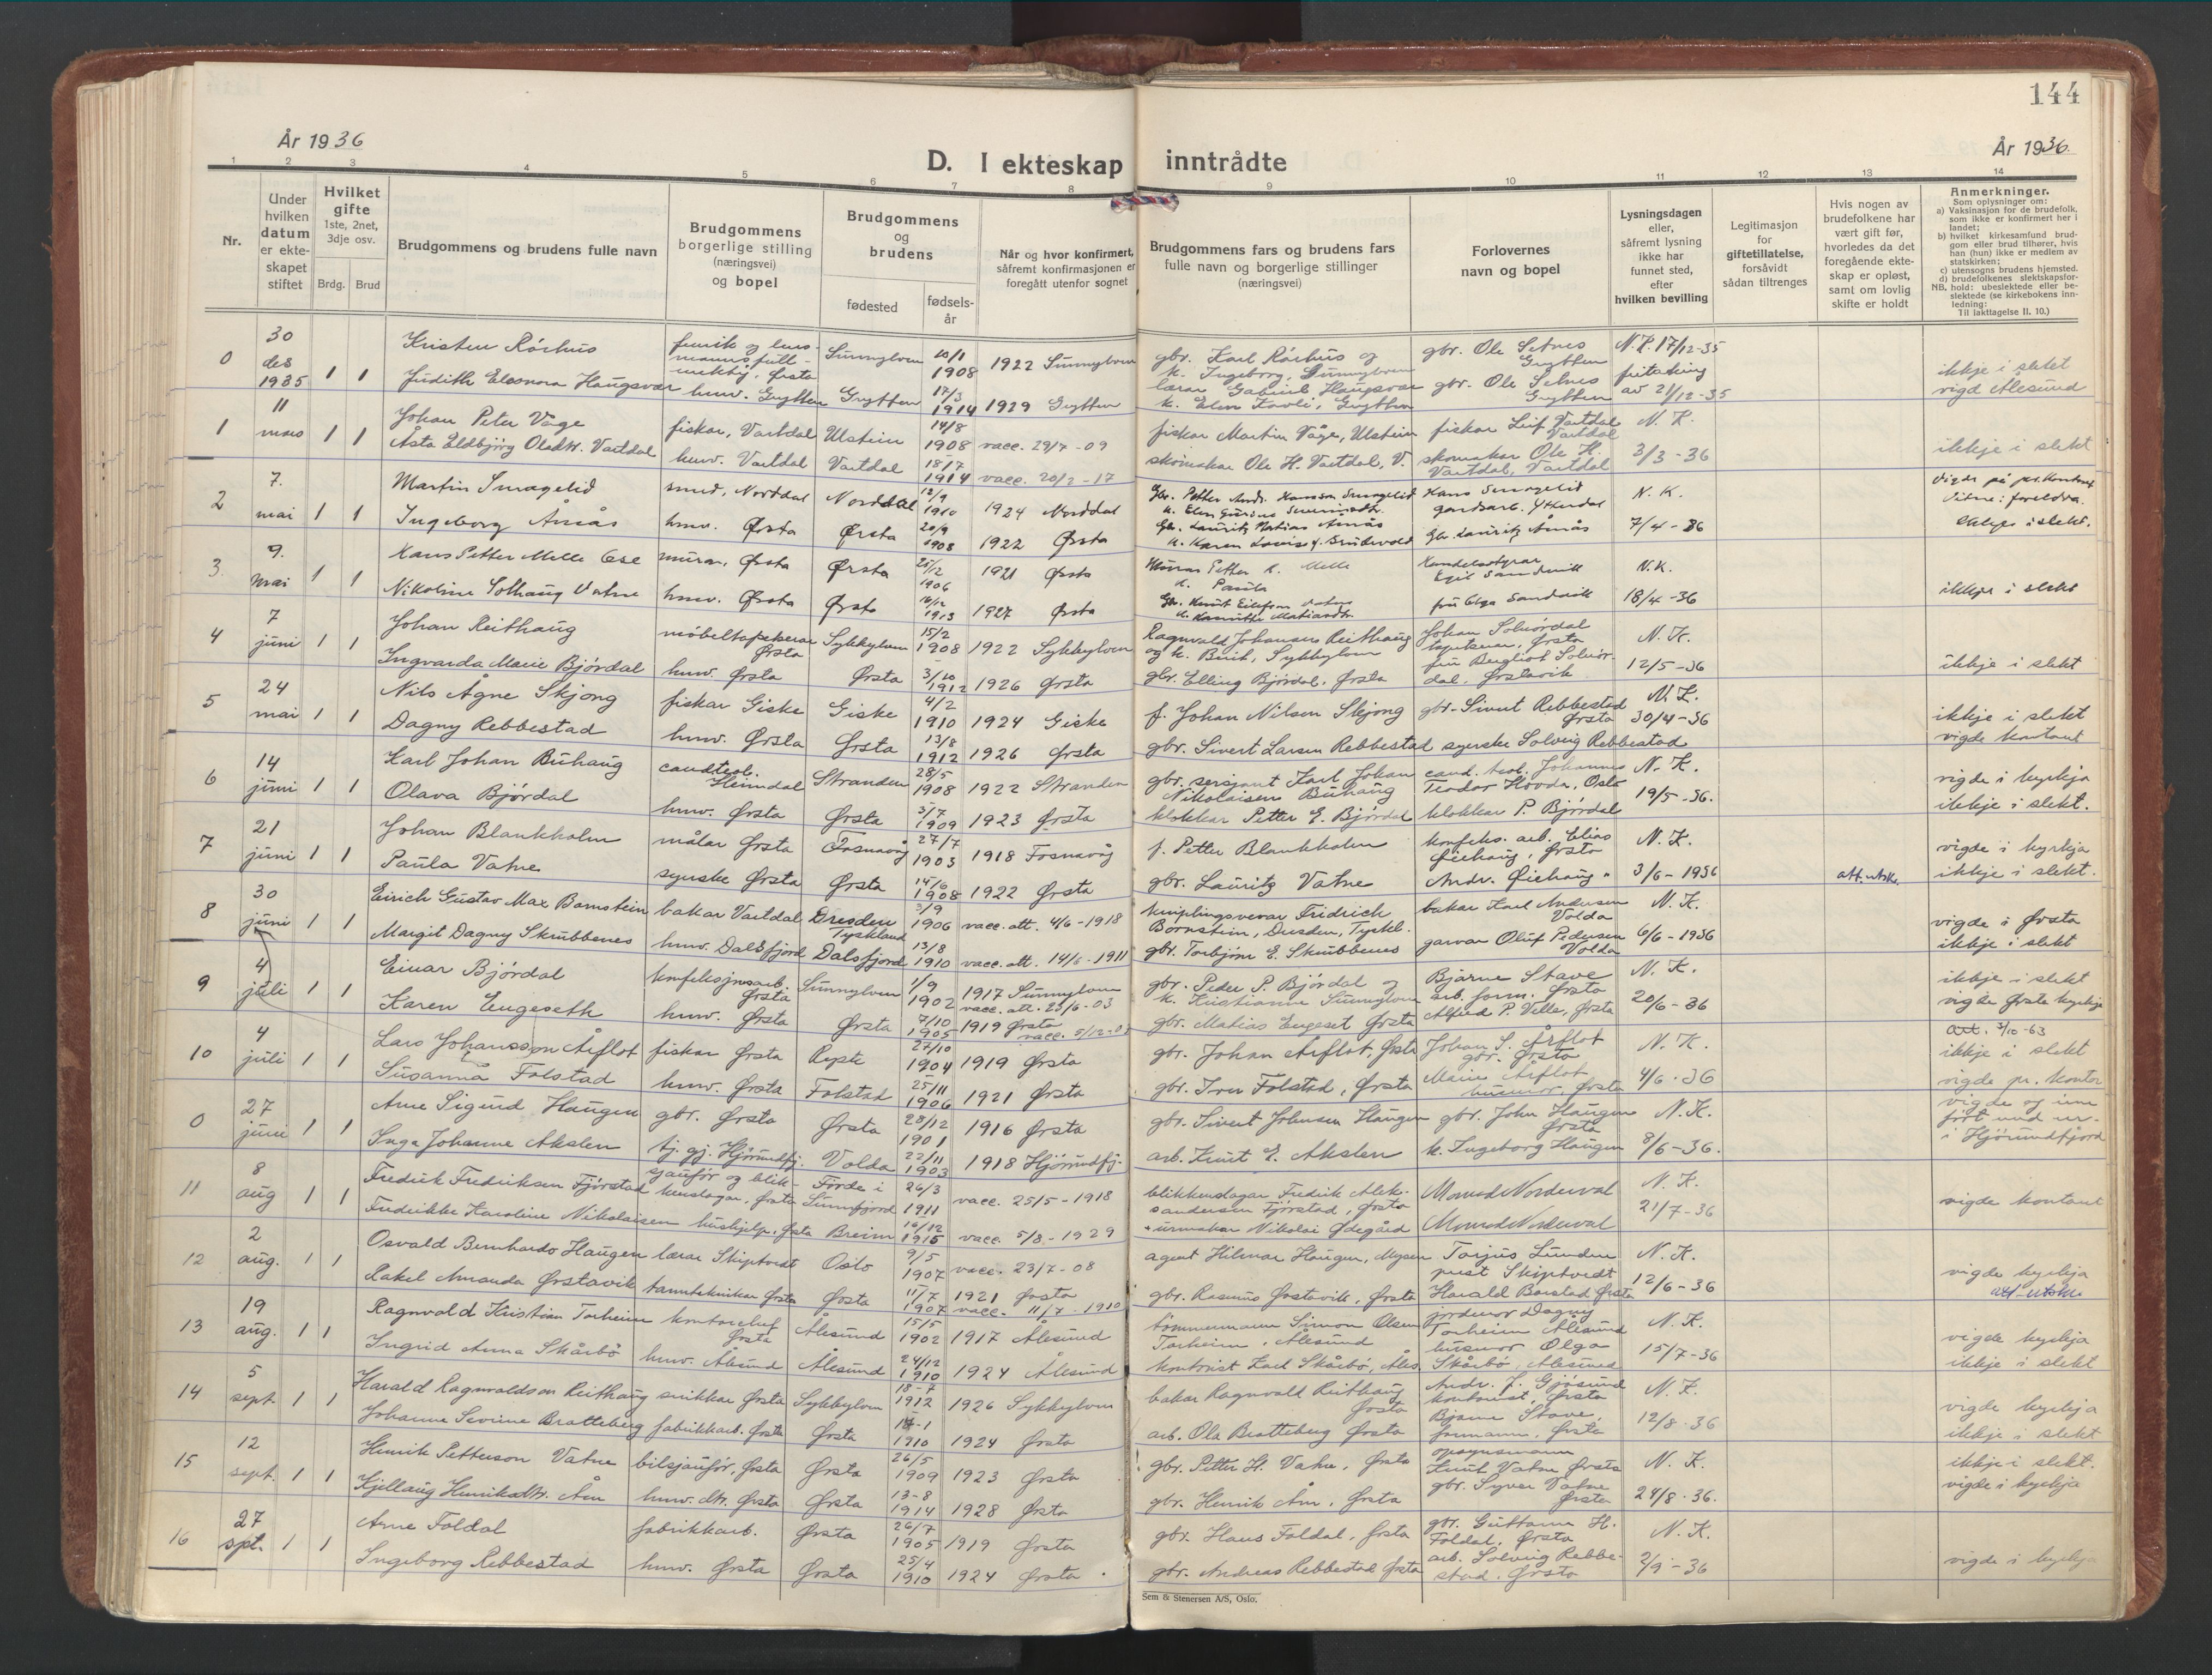 144
År 1936
År 1936.
D. I ekteskap inntrådte
1 2 3 4 5 6 7 8 9 10 11 12 13 14
Nr.
Under hvilken datum er ekteskapet stiftet
Hvilket gifte 1ste, 2net, 3dje osv.
Brdg. Brud
Brudgommens og brudens fulle navn
Brudgommens borgerlige stilling (næringsvei) og bopel
Brudgommens og brudens
fødested
fødselsår
Når og hvor konfirmert, såfremt konfirmasjonen er foregått utenfor sognet
Brudgommens fars og brudens fars fulle navn og borgerlige stillinger (næringsvei)
Forlovernes navn og bopel
Lysningsdagen eller, såfremt lysning ikke har funnet sted, efter hvilken bevilling
Legitimasjon for giftetillatelse, forsåvidt sådan tiltrenges
Hvis nogen av brudefolkene har vært gift før, hvorledes da det foregående ekteskap er opløst, samt om lovlig skifte er holdt
Anmerkninger.
Som oplysninger om:
a) Vaksinasjon for de brudefolk, som ikke er konfirmert her i landet;
b) hvilket kirkesamfund brudgom eller brud tilhører, hvis han (hun) ikke er medlem av statskirken;
c) utensogns brudens hjemsted.
d) brudefolkenes slektskapsforhold: ubeslektede eller beslektede (se kirkebokens innledning:
NB.
Til iakttagelse II. 10.)
0 30 des 1935 1 1 Kristen Rørhus Sunnylven 20/1 1908 1922 Sunnylven gbr. Karl Rørhus og k. Ingeborg, Sunnylven gbr. Ole Setnes Grytten N.K. 17/12-35 ikkje i slekt
Judith Eleonora Haugsvær husv. Grytten Grytten 17/3 1914 1929 Grytten lærar Gabriel Haugsvær gbr. Ole Setnes Grytten av 21/12-35 vigd Ålesund
1 11 mars 1 1 Johan Peter Våge fiskar, Vartdal Ulstein 14/8 1908 vacc. 29/7-09 fiskar Martin Våge, Ulstein fiskar Leif Vartdal Vartdal N.K.
Åsta Eldbjørg Olsdtr. Vartdal husv. Vartdal Vartdal 18/7 1914 vacc. 20/2-17 skomakar Ole H. Vartdal, V. skomakar Ole H. Vartdal, Vartdal 3/3-36 ikkje i slekt
2 7. mai 1 1 Martin Smogelid smed, Norddal Norddal 12/9 1910 1924 Norddal Gbr. Petter Andr. Hansson Smogelid Hans Smogelid gardsarb. N.K.
Ingeborg Åmås husv. Ørsta Ørsta 20/9 1908 1922 Ørsta Gbr. Lauritz Matias Åmås Gbr. Lauritz Åmås 7/4-36 ikkje i slekt.
3. 9. mai 1 1 Hans Petter Melle Ose murar, Ørsta Ørsta 25/12 1906 1921 Ørsta N.K.
Nikoline Solhaug Vatne husv. Ørsta Ørsta 16/12 1913 1927 Ørsta fru Olga Sandvik 18/4-36 ikkje i slekt
4 7 juni 1 1 Johan Reithaug møbeltapetserar Ørsta Sykkylven 15/2 1908 1922 Sykkylven Ragnvald Johansen Reithaug og k. Berit, Sykkylven Johan Solnørdal tapetserar, Ørsta N.K.
Ingvarda Marie Bjørdal husv. Ørsta Ørsta 3/10 1912 1926 Ørsta gbr. Elling Bjørdal, Ørsta fru Bergliot Solnørdal. Ørstavik 12/5-36 ikkje i slekt
5 24 mai 1 1 Nils Ågne Skjong fiskar Giske Giske 4/2 1910 1924 Giske f. Johan Nilsen Skjong gbr. Sivert Rebbestad Ørsta N.K. 30/4-36 ikkje i slekt
Dagny Rebbestad husv. Ørsta Ørsta 13/8 1912 1926 Ørsta gbr. Sivert Larsen Rebbestad syerske Solveig Rebbestad vigde kontoret
6 14 juni 1 1 Karl Johan Buhaug cand teol. Heimdal Stranden 28/5 1908 1922 Stranden gbr. sersjant Karl Johan Nikolaisen Buhaug cand. teol. Johannes Teodor Hovda, Oslo N.K. vigde i kyrkja
Olava Bjørdal husv. Ørsta Ørsta 3/7 1909 1923 Ørsta klokkar Petter E. Bjørdal klokkar P. Bjørdal 19/5-36. ikkje i slekt.
7 21 juni 1 1 Johan Blankholm målar Ørsta Fosnavåg 27/7 1903 1918 Fosnavåg f. Petter Blankholm konfeks. arb. Elias Øiehaug, Ørsta N.K. vigde i kyrkja
Paula Vatne syerske Ørsta Ørsta 14/6 1908 1922 Ørsta gbr. Lauritz Vatne Andr. Øiehaug " 3/6-1936 att. utsk. ikkje i slekt.
8 30 juni 1 1 Eirich Gustav Max Bornstein bakar Vartdal Dresden Tyskland 3/9 1906 vacc. att. 4/6-1918 kniplingsvevar Fridrich Bornstein, Dresden, Tyskl. bakar Karl Andersen Volda N.K. vigde i Ørsta
Margit Dagny Skrubbenes husv. Dalsfjord Dalsfjord 13/8 1910 vacc. att. 14/6-1911 gbr. Torbjørn E. Skrubbenes garvar Oluf Pedersen Volda 6/6-1936 ikkje i slekt
9 4 juli 1 1 Einar Bjørdal konfeksjonsarb. Ørsta Sunnylven 1/9 1902 1917 Sunnylven vacc. att. 23/6-03 gbr. Peder P. Bjørdal og k. Kristianne Sunnylven Bjarne Stave arb. form. Ørsta N.K. ikkje i slekt
Karen Engeseth husv. Ørsta Ørsta 7/10 1905 1919 Ørsta gbr. Matias Engeset Ørsta Alfred P. Velle, Ørsta 20/6-36 vigde Ørsta kyrkje
10 4 juli 1 1 Lars Johansson Årflot fiskar Ørsta 27/10 1904 1919 Ørsta gbr. Johan Årflot, Ørsta Johan S. Årflot gbr. Ørsta N.K. att. 3/10-63 ikkje i slekt
Susanna Folstad husv. Ørsta Folstad 25/11 1906 1921 Ørsta gbr. Iver Folstad, Ørsta Marie Årflot husmor Ørsta 4/6-36 vigde pr. kontor
0 27 juni 1 1 Arne Sigurd Haugen gbr. Ørsta Ørsta 28/12 1901 1916 Ørsta gbr. Sivert Johnsen Haugen gbr. John Haugen Ørsta N.K. vigde og innført
Inga Johanne Akslen tj. gj. Hjørundfj. Volda 22/11 1903 1918 Hjørundfj. arb. Knut E. Akslen k. Ingeborg Haugen 8/6-36. i Hjørundfjord
11 8 aug 1 1 Fredrik Fredriksen Fjørstad sjauför og blikkenslagar, Ørsta Förde i Sunnfjord 26/3 1911 vacc. 25/5-1918 blikkenslagar Fredrik Aleksandersen Fjørstad, Ørsta Monrad Norderval N.K.
Fredrikke Karoline Nikolaisen hushjelp, Ørsta Breim 16/12 1915 vacc. 5/8-1929 urmakar Nikolai Ødegård Monrad Norderval 21/7-36 vigde kontoret
12 2 aug. 1 1 Osvald Bernhardo Haugen lærar Skiptvedt Oslo 9/5 1907 vacc. 23/7-08 agent Hilmar Haugen, Mysen Torjus Lunden prest Skiptvedt N.K. vigde kyrkja
Rakel Amanda Ørstavik tannteknikar Ørsta Ørsta 11/7 1907 1921 Ørsta vacc. 11/7-1910 gbr. Rasmus Ørstavik, Ørsta Harald Borstad Ørsta 12/6-36 att-utskr.
13 19 aug. 1 1 Ragnvald Kristian Torheim kontorchef Ørsta Ålesund 15/5 1902 1917 Ålesund tømmermann Simon Olsen Torheim, Ålesund jordmor Dagny Torheim Ålesund N.K. vigde kyrkja
Ingrid Anna Skårbö husv. Ålesund Ålesund 24/12 1910 1924 Ålesund kontorist Karl Skårbö, Åles. husmor Olga Skårbö, Ålesund 15/7-36 ikkje i slekt
14 5 sept. 1 1 Harald Ragnvaldson Reithaug snikkar Ørsta Sykkylven 18-7 1912 1926 Sykkylven bakar Ragnvald Reithaug Ørsta Andr. J. Gjøsund kontorist, Ørsta N.K. vigde kyrkja
Johanne Severine Bratteberg fabrikkarb. Ørsta Ørsta 1910 1924 Ørsta arb. Ola Bratteberg Ørsta Bjarne Stave, formann, Ørsta 12/8-36 ikkje i slekt
15 12 sept. 1 1 Henrik Petterson Vatne bilsjauför, Ørsta Ørsta 26/5 1909 1923 Ørsta gbr. Petter H. Vatne, Ørsta Knut Vatne Ørsta N.K. ikkje i slekt.
Kjellaug Henriksdtr. Åm husv. dtr. Ørsta Ørsta 13-8 1914 1928 Ørsta gbr. Henrik Åm, Ørsta gbr. Syver Vatne Ørsta 24/8-36. vigde i kyrkja
16 27 spt. 1 1 Arne Foldal fabrikkarb. Ørsta 26/7 1905 1919 Ørsta gbr. Hans Foldal, Ørsta gbr. Guttorm H. Foldal, Ørsta N.K.
Ingeborg Rebbestad husv. Ørsta Ørsta 25/4 1910 1924 Ørsta gbr. Andreas Rebbestad Ørsta arb. Solveig Rebbestad. Ørsta 2/9-36 vigde i kyrkja
Sem & Stenersen A/S, Oslo.